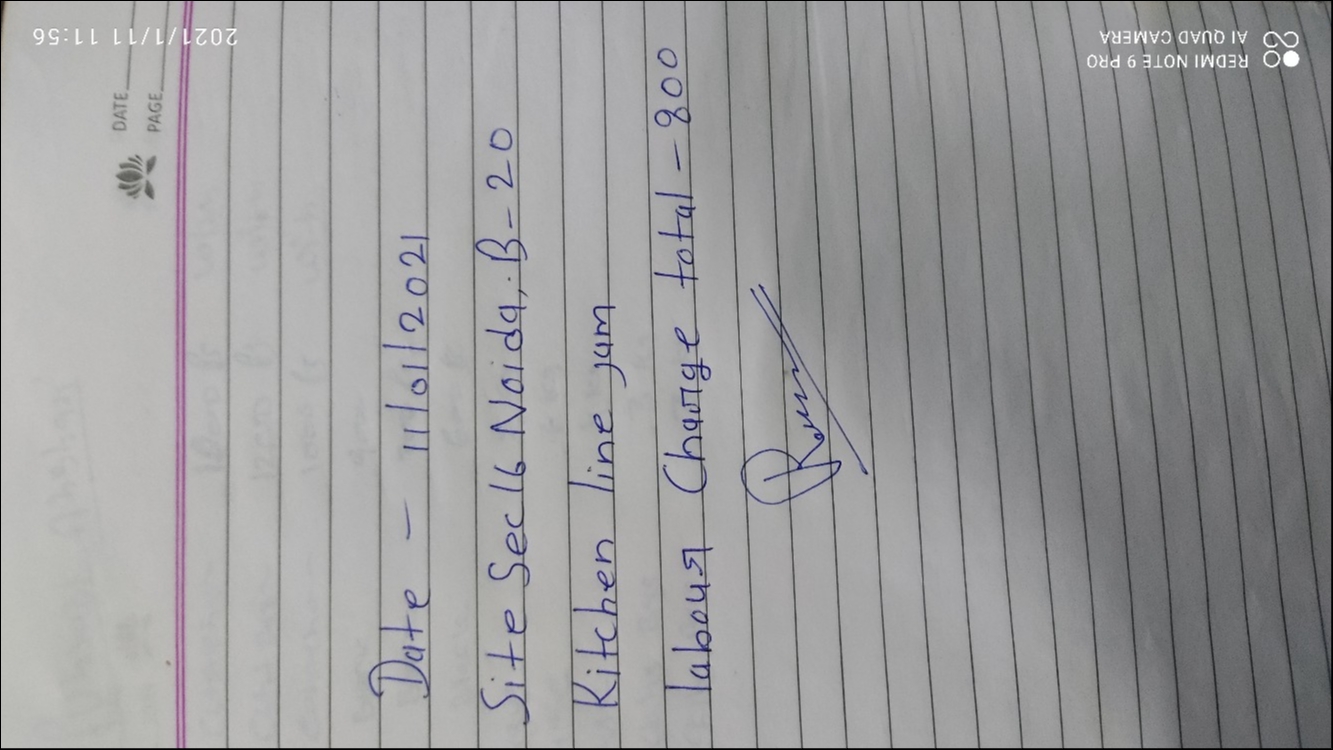 DATE
PAGE
Date - 11/01/2021
Site Sec 16 Noida, B-20
Kitchen line jam
labour Charge total - 800
2021/1/11 11:56
REDMI NOTE 9 PRO
AI QUAD CAMERA